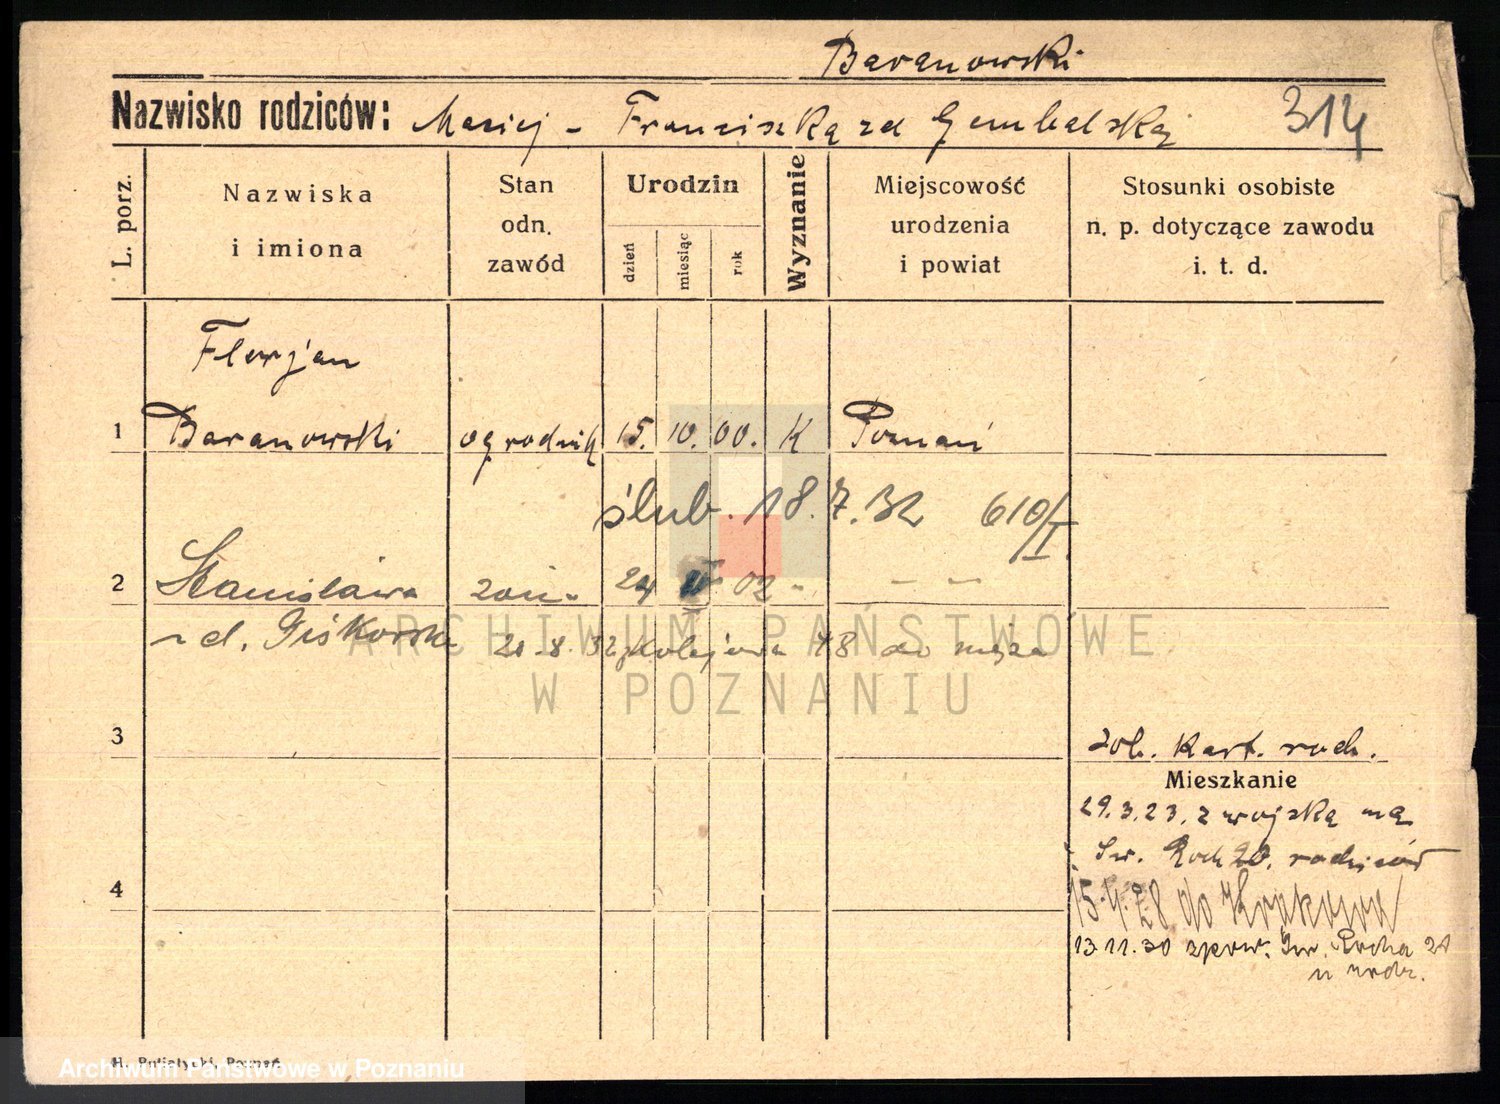 Baranowski
Nazwisko rodziców: Maciej - Franciszka zd Gembalskaj
314
L. porz.
Nazwiska
i imiona
Stan
odn.
zawód
Urodzin
dzień
miesiąc
rok
Wyznanie
Miejscowość
urodzenia
i powiat
Stosunki osobiste
n. p. dotyczące zawodu
i. t. d.
Florjan
1 Baranowski ogrodnik 15. 10. 00. K Poznań
ślub. 18. 7. 32 610/I.
2 Stanisława 24 02 - - -
zd. 20.8.32 z Kolejowa 48 do męża
3
zob. Kart. rodz.
Mieszkanie
29.3.23. z wojska na
Św. Roch 20. rodziców
4
15.4.28 do Krakowa
13.11.30 zpow. Św. Rocha 21
u rodz.
H. Putiatycki, Poznań
ARCHIWUM PAŃSTWOWE
W POZNANIU
Archiwum Państwowe w Poznaniu